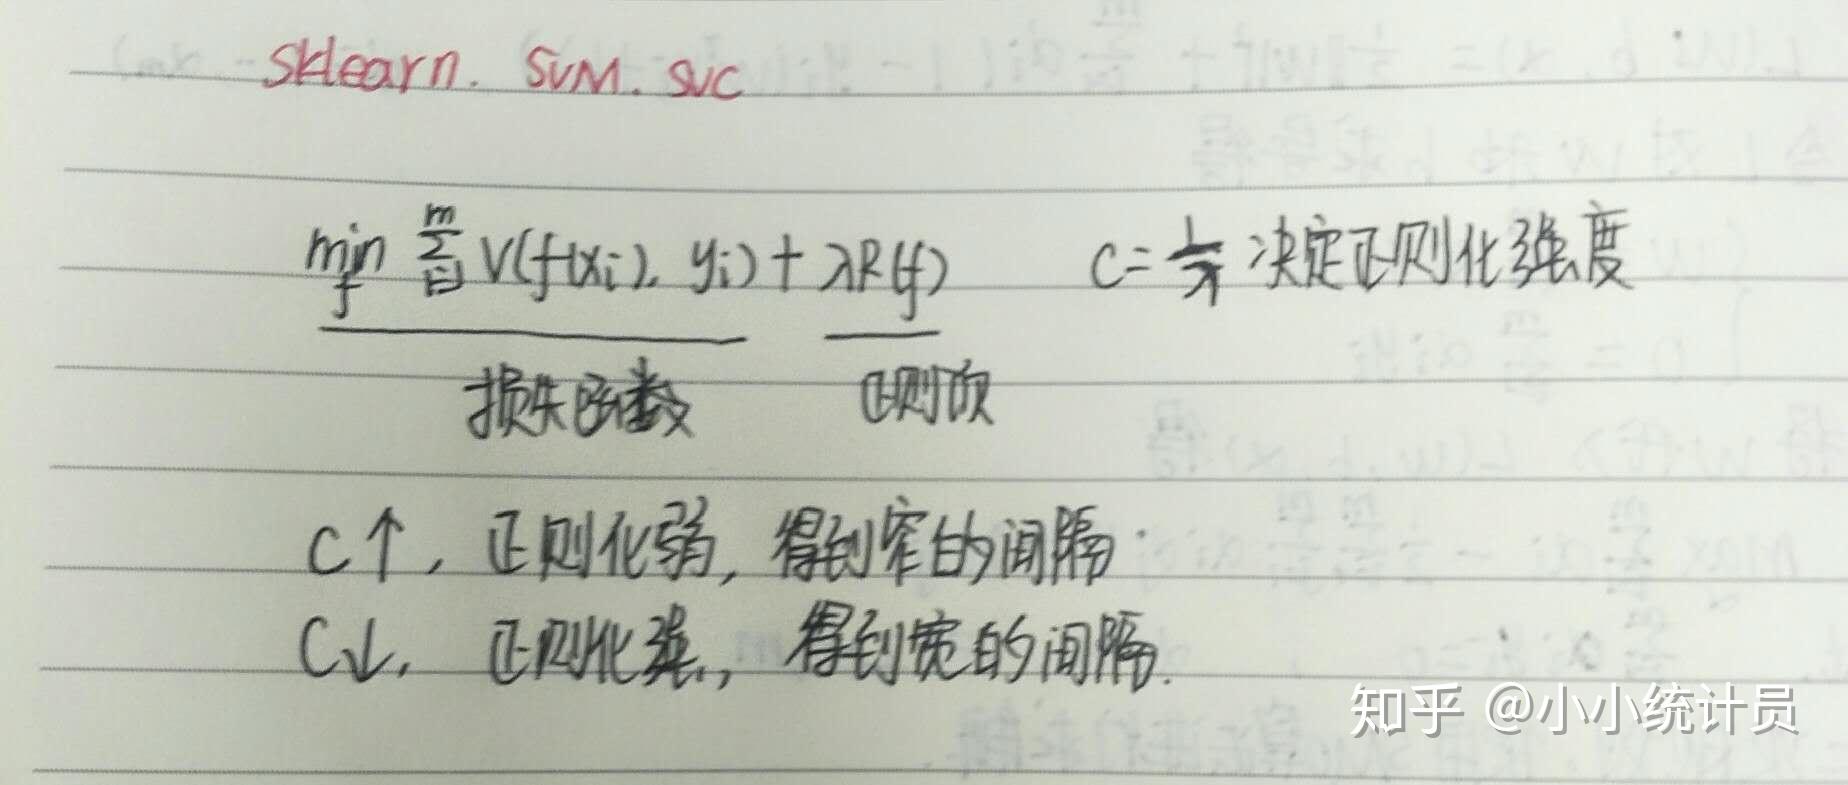 sklearn. SVM. SVC
min f m Σ i=1 V(f(xi), yi) + λR(f) C = 1/λ 决定正则化强度
损失函数 正则项
C↑, 正则化弱, 得到窄的间隔.
C↓, 正则化强, 得到宽的间隔.
知乎 @小小统计员